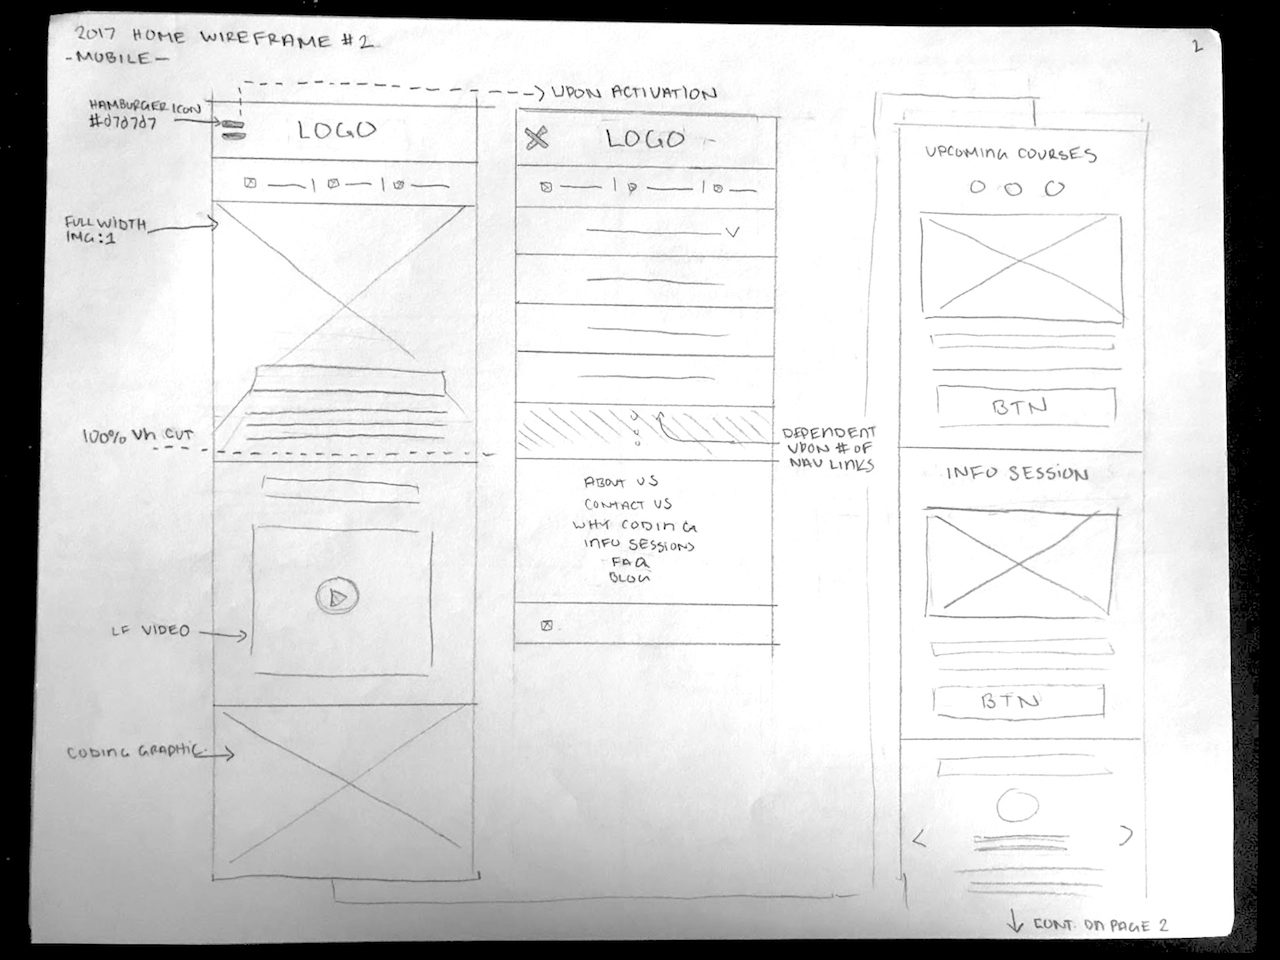 2017 HOME WIREFRAME #2
-MOBILE-
2
HAMBURGER ICON
#d7d7d7
UPON ACTIVATION
LOGO
FULL WIDTH
IMG:1
100% Vh CUT
LF VIDEO
CODING GRAPHIC
LOGO
DEPENDENT
UPON # OF
NAV LINKS
ABOUT US
CONTACT US
WHY CODING
INFO SESSIONS
FAQ
BLOG
UPCOMING COURSES
BTN
INFO SESSION
BTN
CONT. ON PAGE 2